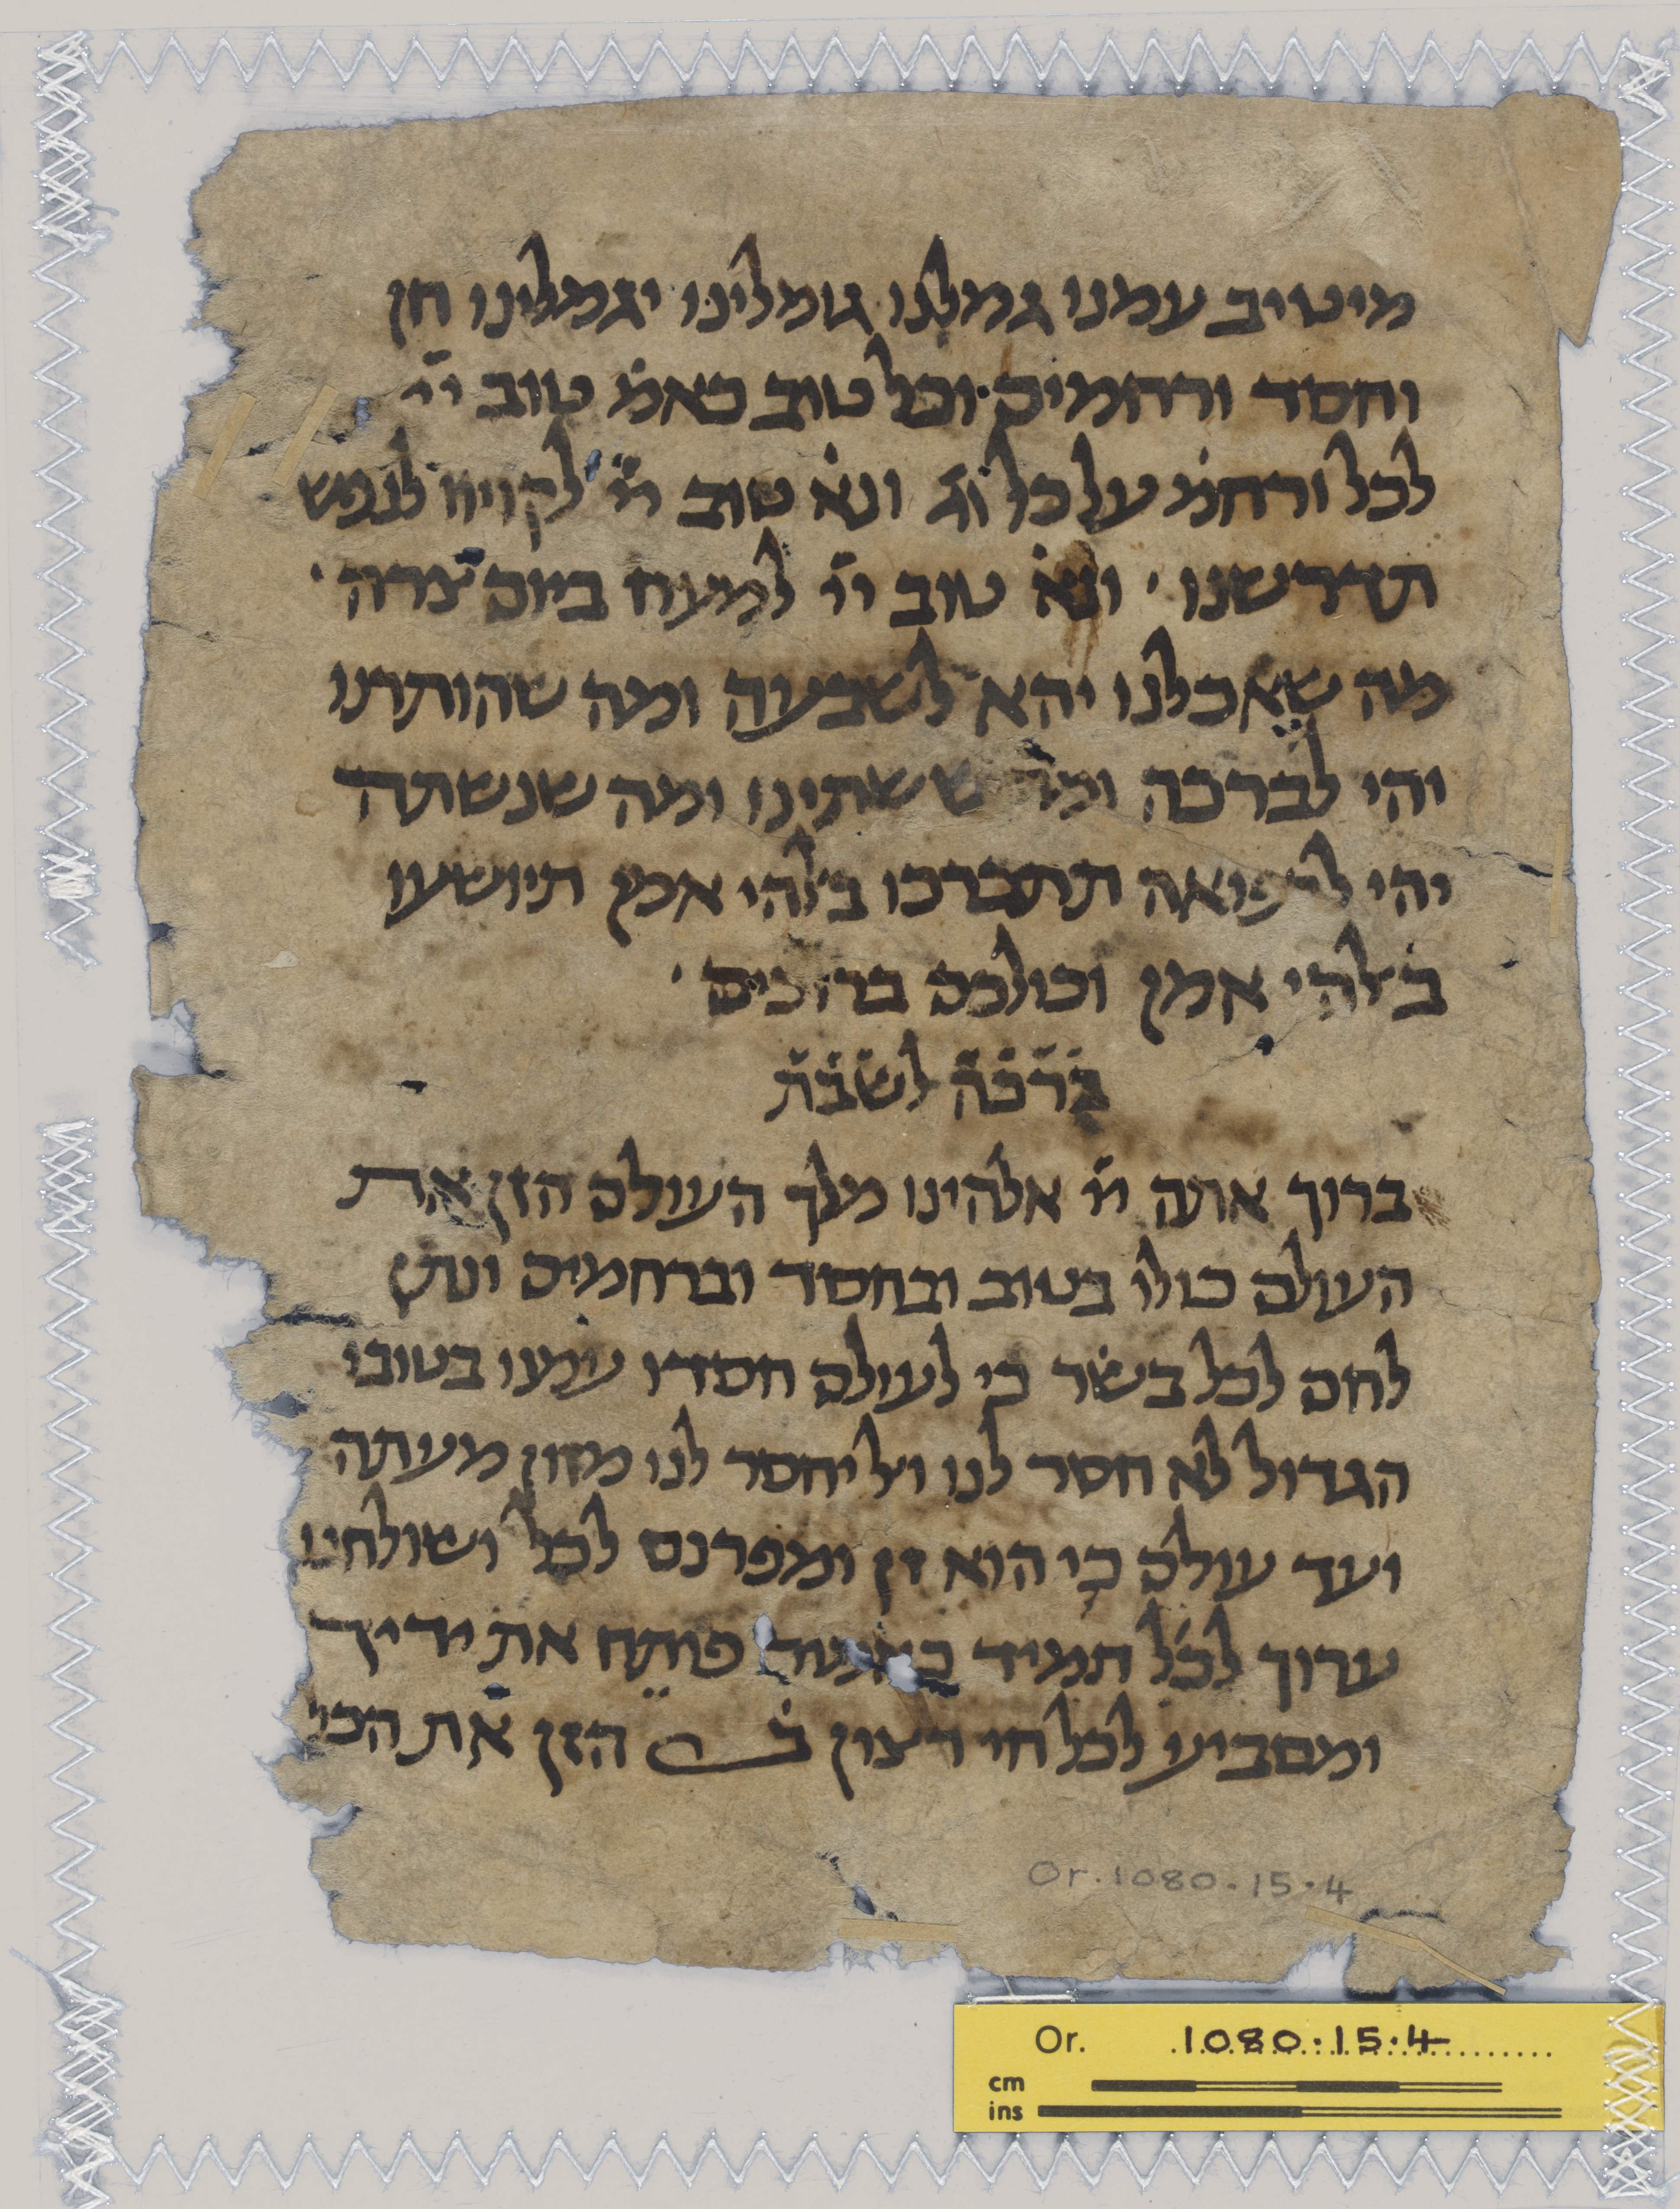 מיטיב עמנו גמלנו גומלינו יגמלינו חן
וחסד ורחמים וכל טוב כאמ טוב ייי
לכל ורחמ על כל ונא טוב ייי לקויו לנפש
תדרשנו ונא טוב ייי למעוז ביום צרה
מה שאכלנו יהא לשבעה ומה שהותרנו
יהי לברכה ומה ששתינו ומה שנשתה
יהי לרפואה תתברכו באלהי אמן תיושעו
באלהי אמן וכולכם ברוכים
ברכה לשבת
ברוך אתה ייי אלהינו מלך העולם הזן את
העולם כולו בטוב ובחסד וברחמים ונותן
לחם לכל בשר כי לעולם חסדו עמנו בטובו
הגדול לא חסר לנו ואל יחסר לנו מזון מעתה
ועד עולם כי הוא זן ומפרנס לכל ושולחנו
ערוך לכל תמיד פותח את ידיך
ומסביע לכל חי רצון ב הזן את הכל
Or.1080.15.4
Or. 1080.15.4
cm
ins